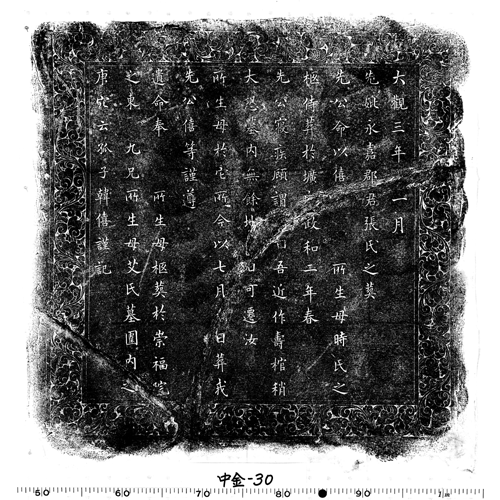 大觀三年 一月
先妣永嘉郡君張氏之葬
先公命以僖 所生母時氏之
柩侍葬於壙 政和二年春
先公寢疾顧謂 曰吾近作壽棺稍
大 墓內無餘地 可遷汝
所生母於它所今以七月 日葬我
先公僖等謹遵
遺命奉 所生母柩葬於崇福院
之東 九兄所生母艾氏墓園內之
庚穴云孤子韓僖謹記
中金-30
50 60 70 80 90